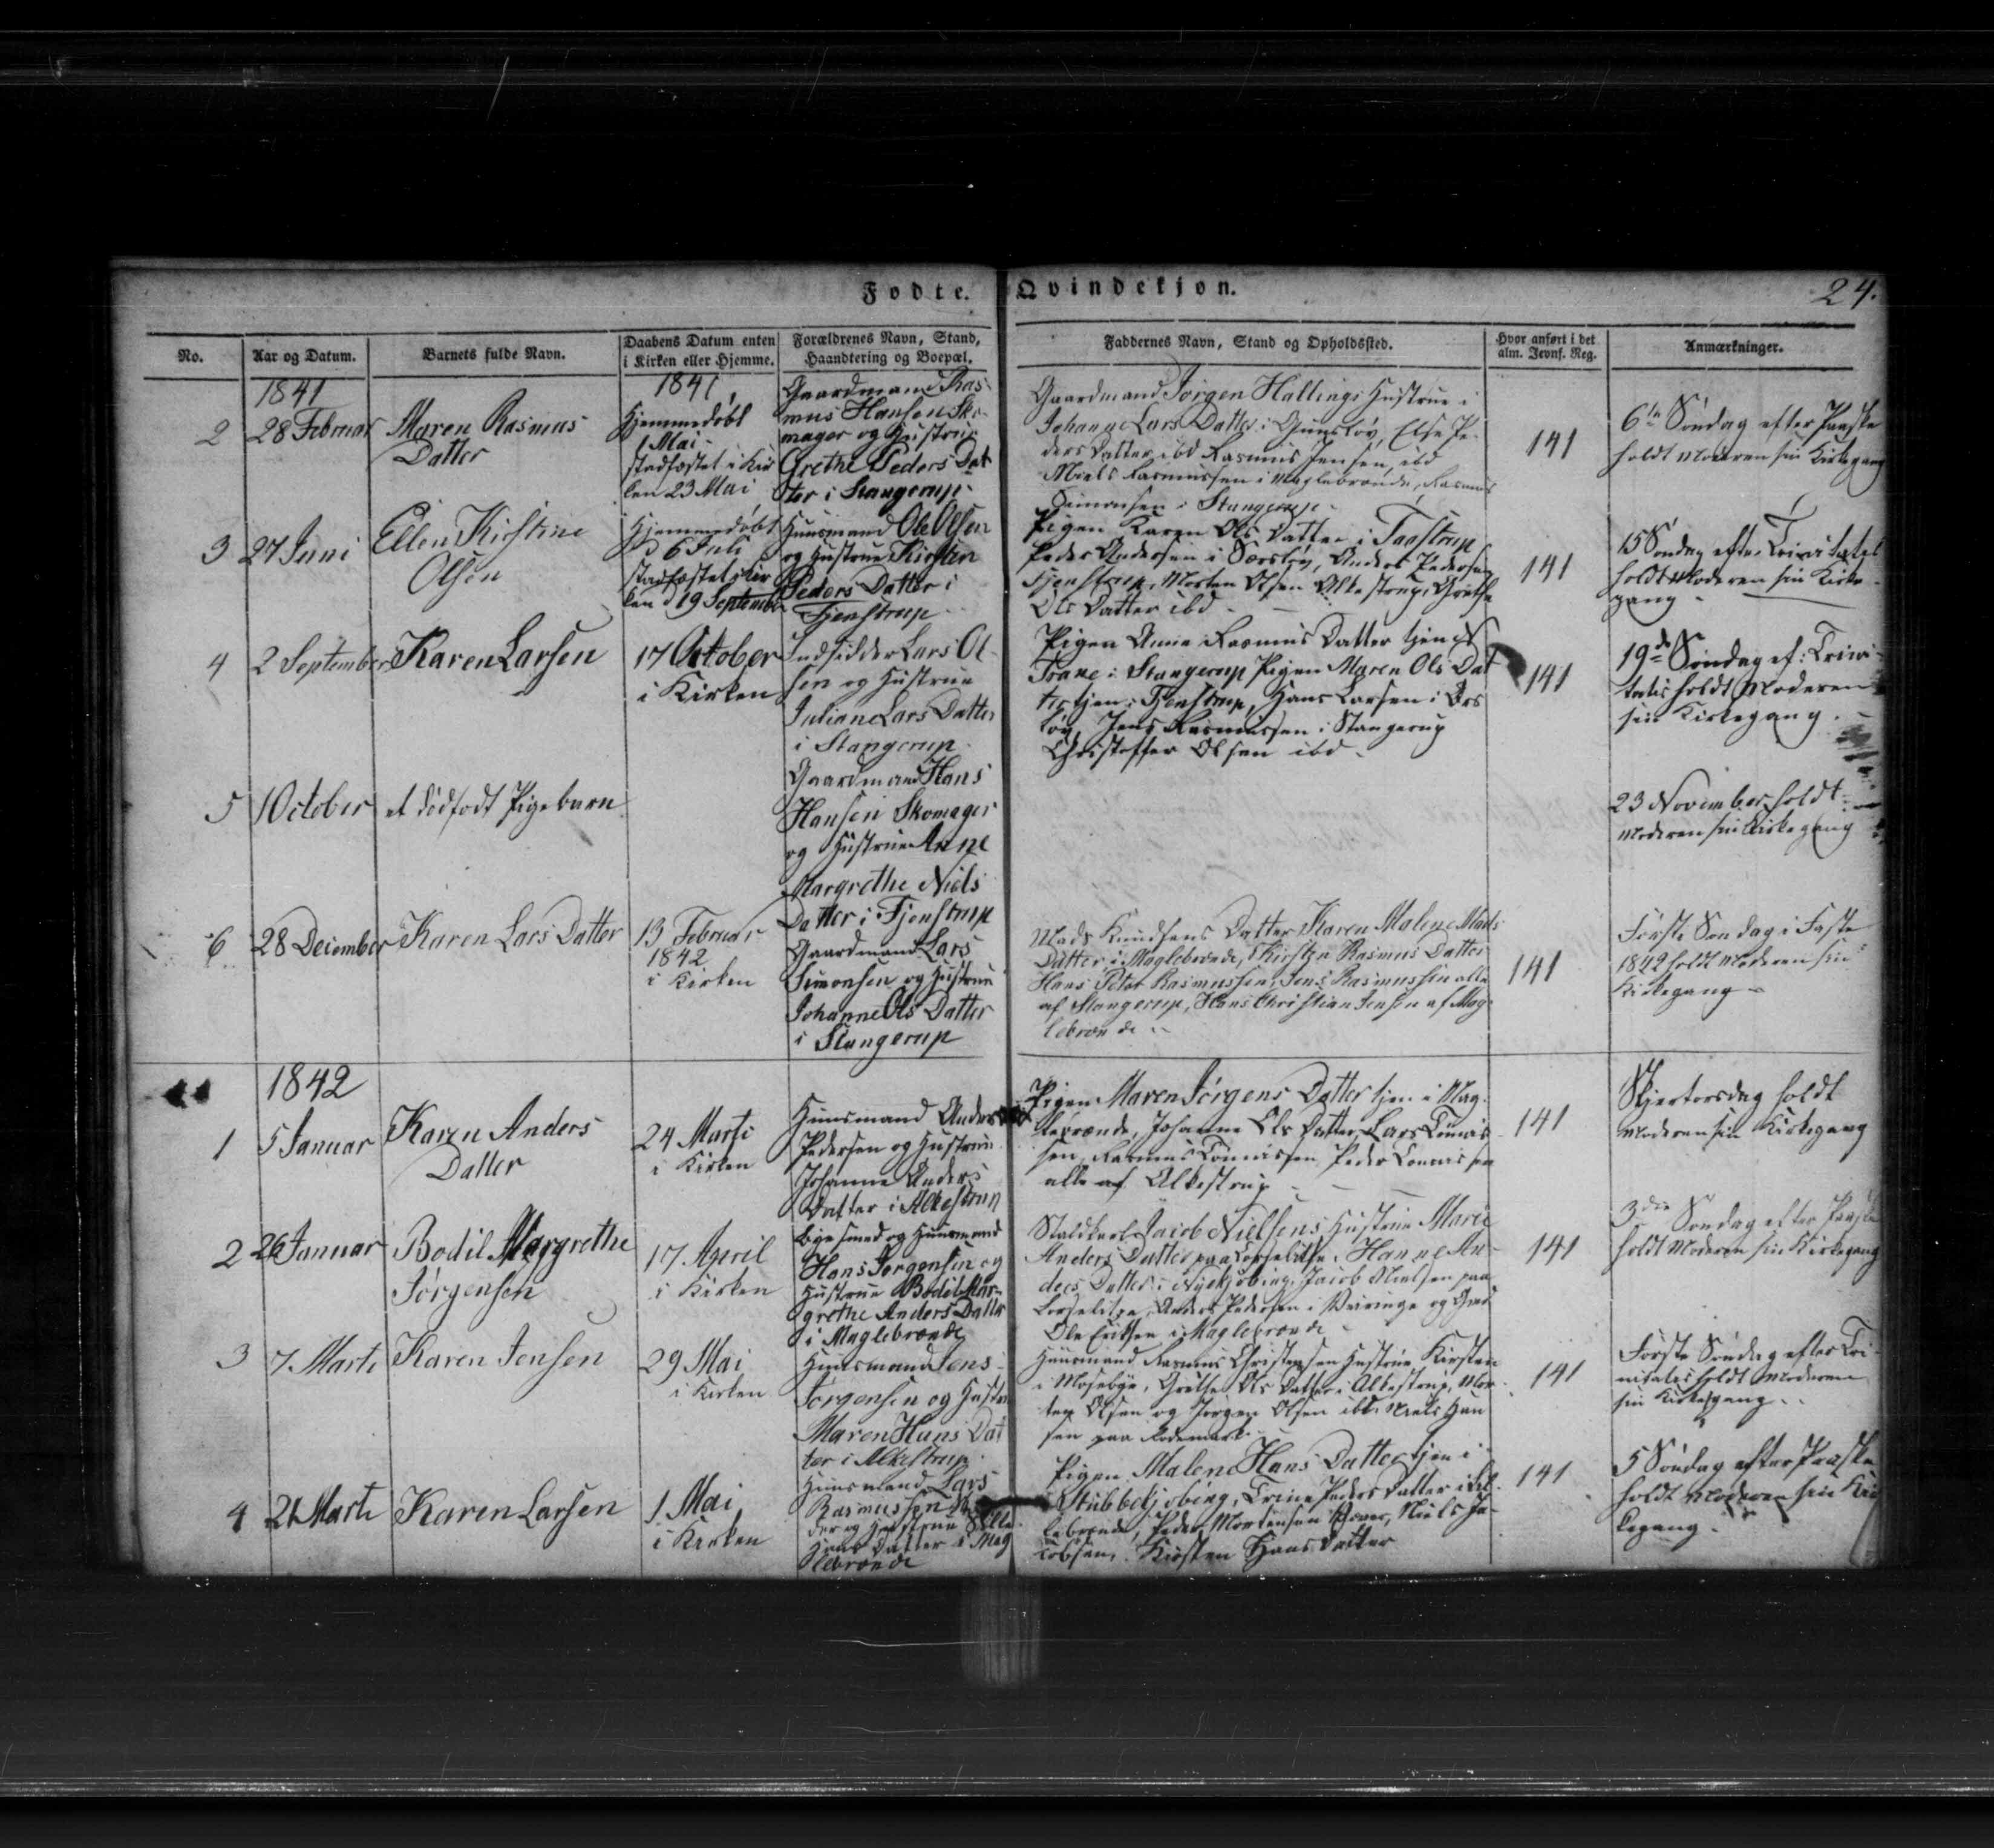 Fødte. Qvindekjøn.
24.
No.
Aar og Datum.
Barnets fulde Navn.
Daabens Datum enten
i Kirken eller Hjemme.
Forældrenes Navn, Stand,
Haandtering og Boepæl.
Faddernes Navn, Stand og Opholdssted.
Hvor anført i det
alm. Jevnf. Reg.
Anmærkninger.
1841
2
28 Februar
Maren Rasmus
Datter
1841
Hjemmedøbt
1 Mai
stadfæstet i Kir
ken 23 Mai
Gaardmand Ras
mus Hansen Sko
mager og Hustrue
Grethe Peders Dat
ter i Stangerup
Gaardmand Jørgen Hallings Hustrue i
Johanne Lars Datter i Gunsløv, Else Pe
ders Datter ibd Rasmus Jensen, ibd
Niels Rasmussen i Maglebrænde, Rasmus
Simonsen i Stangerup
141
6te Søndag efter Paaske
holdt Moderen sin Kirkegang
3
27 Juni
Ellen Kirstine
Olsen
Hjemmedøbt
d 6 Juli
stadfæstet i Kir
ken d 19 September
Huusmand Ole Olsen
og Hustrue Kirsten
Peders Datter i
Tjenstrup
Pigen Karen Ols Datter i Taastrup
Peder Andersen i Sørsløv, Anders Pedersen
Tjenstrup, Morten Olsen Alkestrup, Grethe
Ols Datter ibd
141
15 Søndag efter Trinitatis
holdt Moderen sin Kirke
gang
4
2 September
Karen Larsen
17 October
i Kirken
Indsidder Lars Ol
sen og Hustrue
Juliane Lars Datter
i Stangerup
Pigen Anne Rasmus Datter tjen
Trane i Stangerup Pigen Maren Ols Dat
ter tjen i Tjenstrup, Hans Larsen i Ørs
løv, Jens Rasmussen i Stangerup
Christoffer Olsen ibd
141
19de Søndag ef: Trini
tatis holdt Moderen
sin Kirkegang.
5
1 October
et dødfødt Pigebarn
Gaardmand Hans
Hansen Skomager
og Hustrue Anne
Margrethe Niels
Datter i Tjenstrup
23 November holdt
Moderen sin Kirkegang
6
28 December
Karen Lars Datter
13 Februar
1842
i Kirken
Gaardmand Lars
Simonsen og Hustrue
Johanne Ols Datter
i Stangerup
Mads Knudsens Datter Karen Malene Mads
Datter i Maglebrænde, Kirsten Rasmus Datter
Hans Peter Rasmussen, Jens Rasmussen alle
af Stangerup, Hans Christian Jensen af Mag
lebrænde
141
Første Søndag i Faste
1842 holdt Moderen sin
Kirkegang
1842
1
5 Januar
Karen Anders
Datter
24 Marti
i Kirken
Huusmand Anders
Pedersen og Hustrue
Johanne Anders
Datter i Alkestrup
Pigen Maren Jørgens Datter tjen i Mag
lebrænde, Johanne Ols Datter, Lars Tønnis
sen, Rasmus Tønnissen, Peder Tønnissen
alle af Alkestrup
141
Skjertorsdag holdt
Moderen sin Kirkegang
2
26 Januar
Bodil Margrethe
Jørgensen
17 April
i Kirken
Bysmed og Huusmand
Hans Jørgensen og
Hustrue Bodil Mar
grethe Anders Datter
i Maglebrænde
Staldkarl Jacob Nielsens Hustrue Marie
Anders Datter paa Corselitse, Hanne An
ders Datter i Nyekjøbing, Jacob Nielsen paa
Corselitse, Anders Pedersen i og
Ole Eriksen i Maglebrænde
141
3die Søndag efter Paaske
holdt Moderen sin Kirkegang
3
7 Marti
Karen Jensen
29 Mai
i Kirken
Huusmand Jens
Jørgensen og Hustrue
Maren Hans Dat
ter i Alkestrup
Huusmand Rasmus Christensen Hustrue Kirsten
i Mosebye, Grethe Ols Datter i Alkestrup, Mor
ten Olsen og Jørgen Olsen ibd Niels Han
sen paa Rodemark
141
Første Søndag efter Tri
nitatis holdt Moderen
sin Kirkegang
4
21 Marti
Karen Larsen
1 Mai
i Kirken
Huusmand Lars
Rasmussen
og Hustrue
Hans Datter i Mag
lebrænde
Pigen Malene Hans Datter tjen i
Stubbekjøbing, Trine Peders Datter i
lebrænde, Peder Mortensen, Niels Ja
cobsen, Kirsten Hans Datter
141
5 Søndag efter Paaske
holdt Moderen sin Kir
kegang